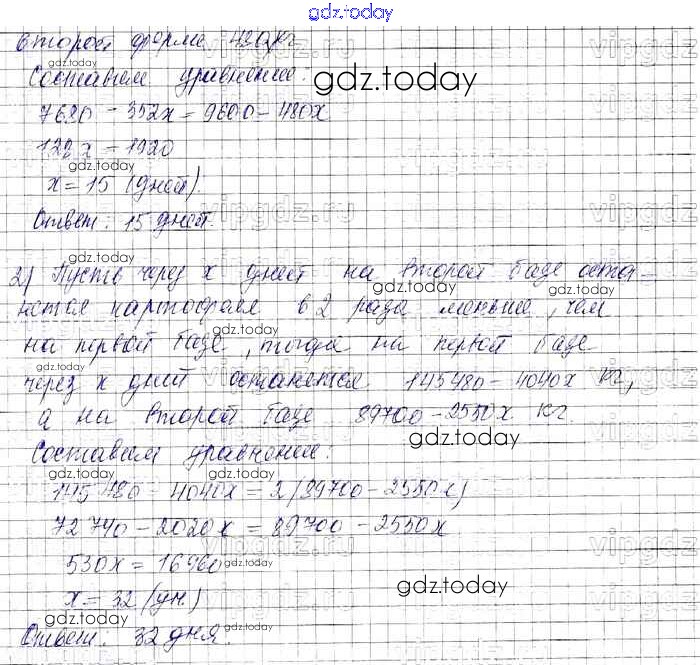 gdz.today
второй ферме 480 кг
Составим уравнение:
gdz.today
7680 - 352x = 9600 - 480x
128x = 1920
gdz.today
x = 15 (дней).
Ответ: 15 дней.
vipgdz.ru
gdz.today
2) Пусть через x дней на второй базе оста-
нется картофеля в 2 раза меньше, чем
gdz.today
на первой базе, тогда на первой базе
через x дней останется 145480 - 4040x кг,
а на второй базе 89700 - 2550x кг
gdz.today
Составим уравнение:
gdz.today
145480 - 4040x = 2(89700 - 2550x)
72740 - 2020x = 89700 - 2550x
530x = 16960
gdz.today
x = 32 (дн.)
Ответ: 32 дня.
gdz.today